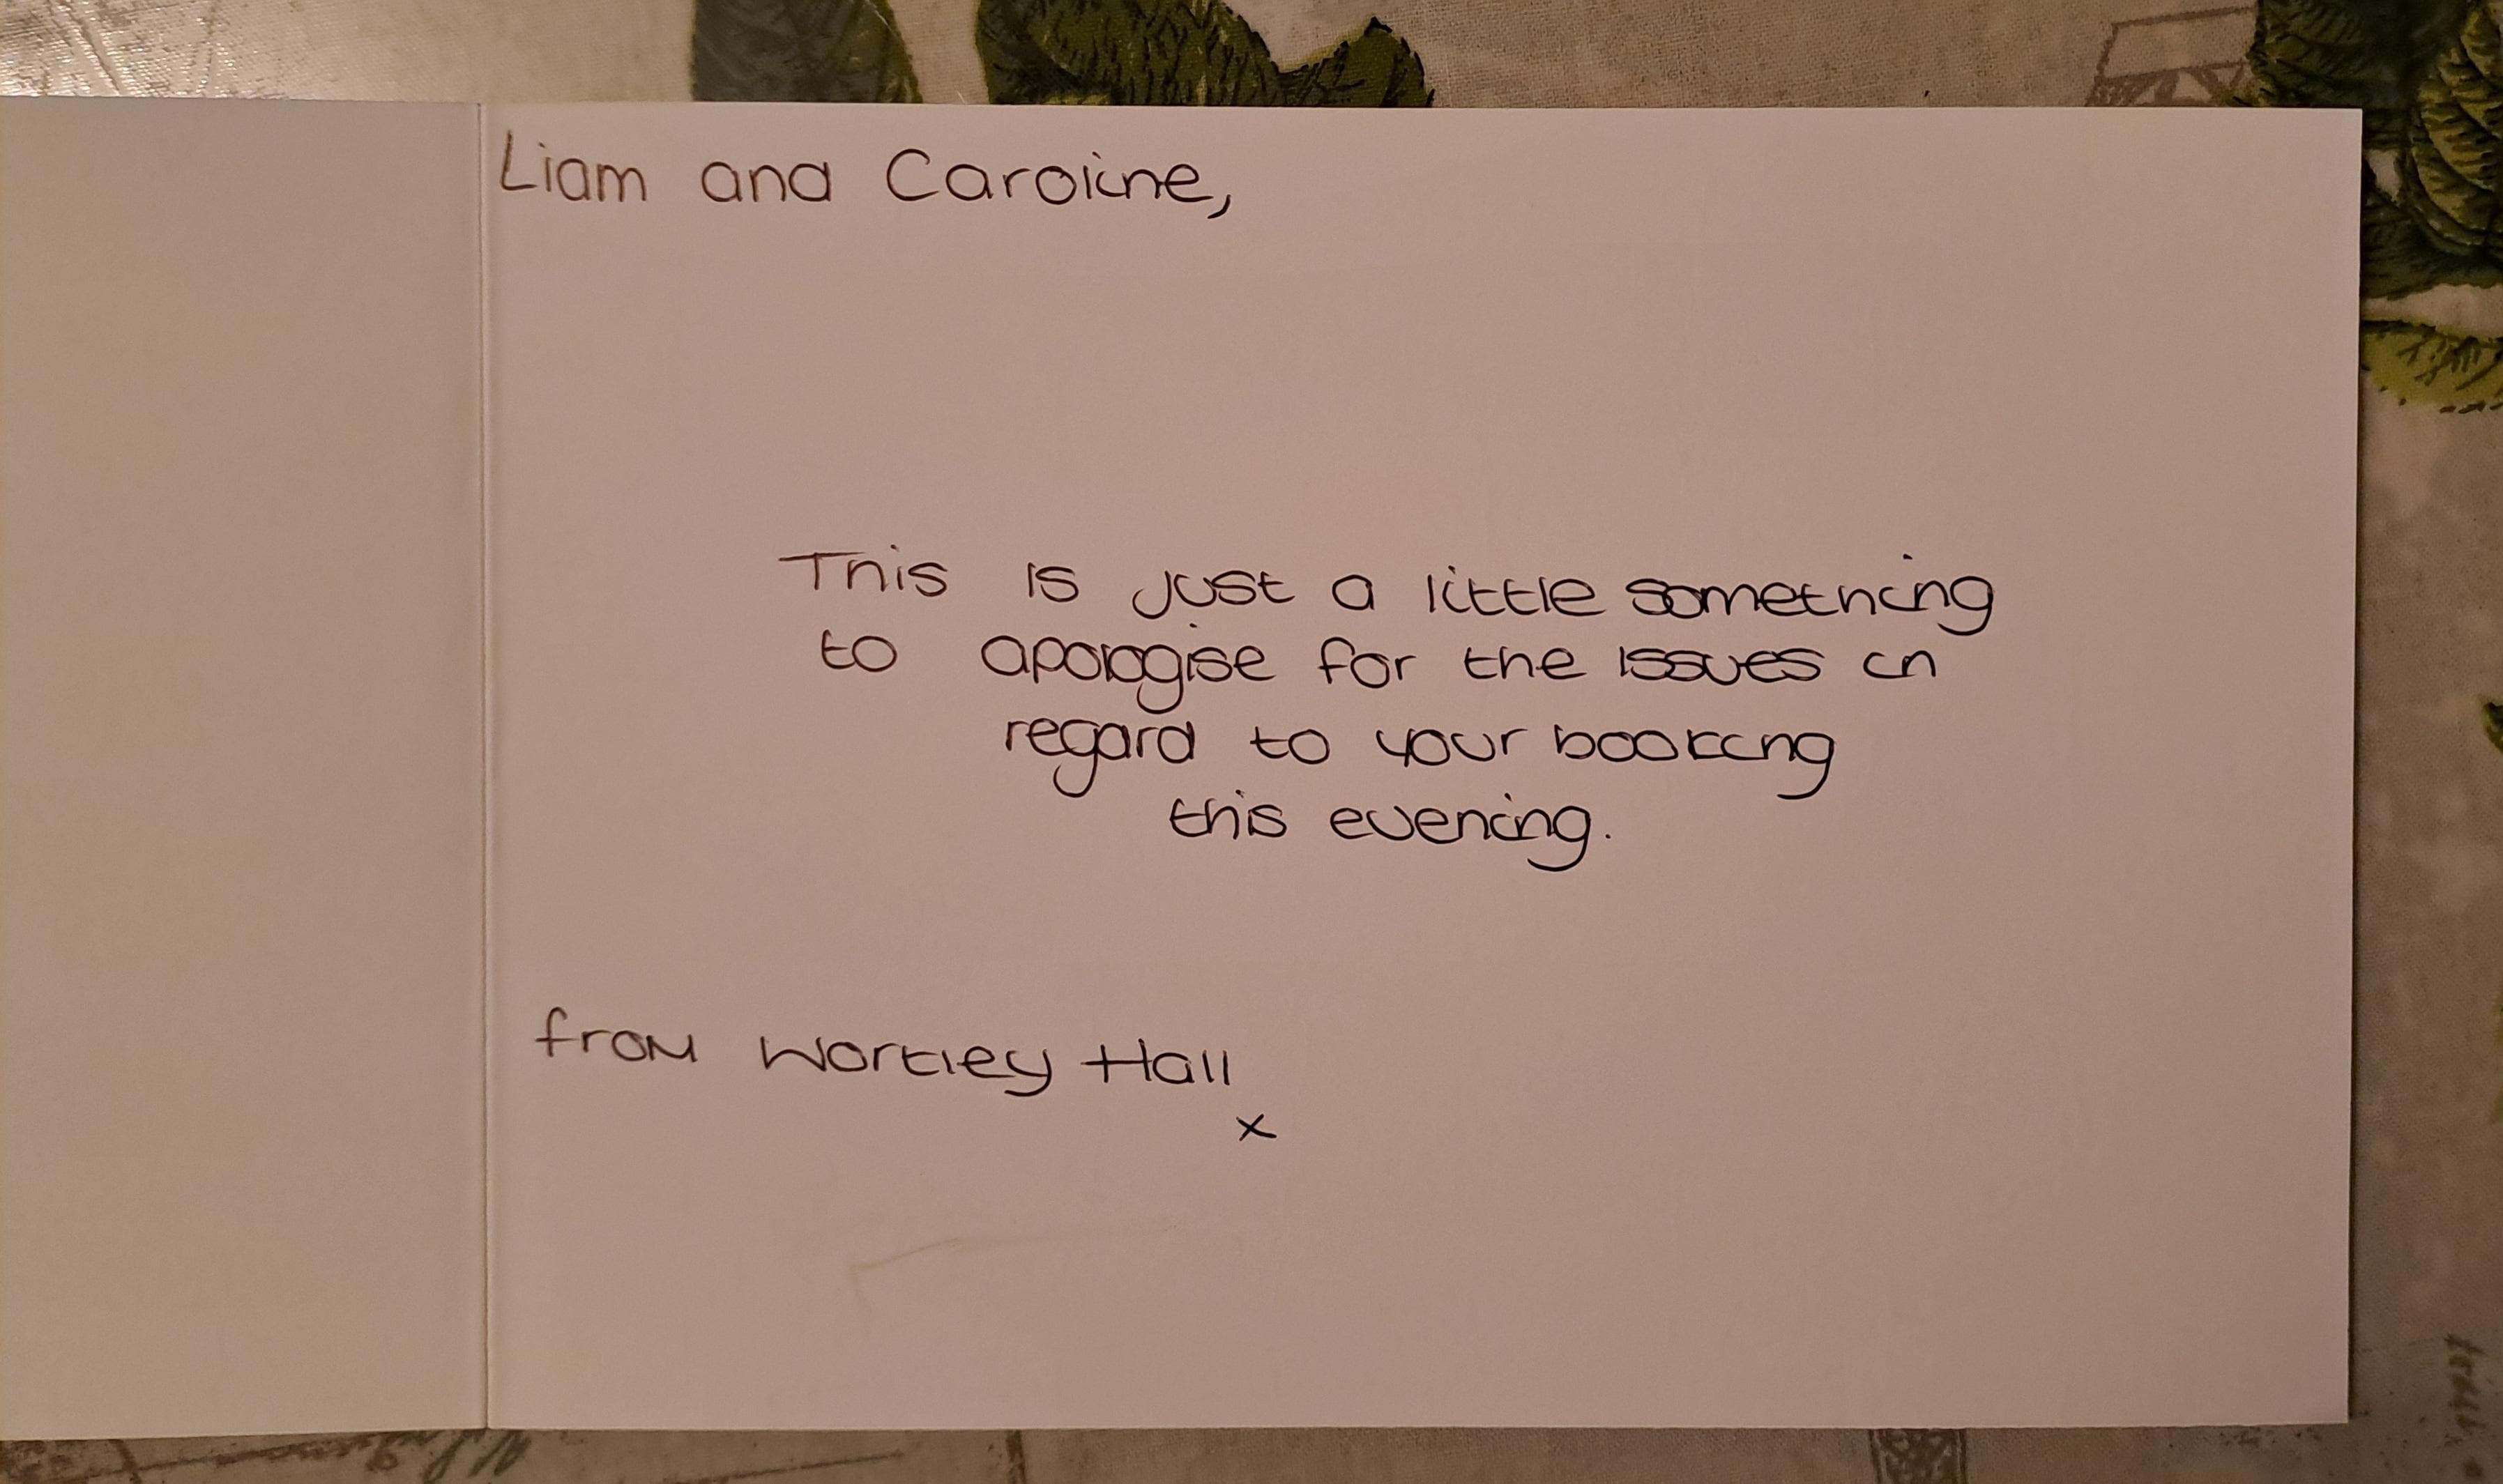 Liam and Caroline,
This is just a little something
to apologise for the issues in
regard to your booking
this evening.
from Wortley Hall
x